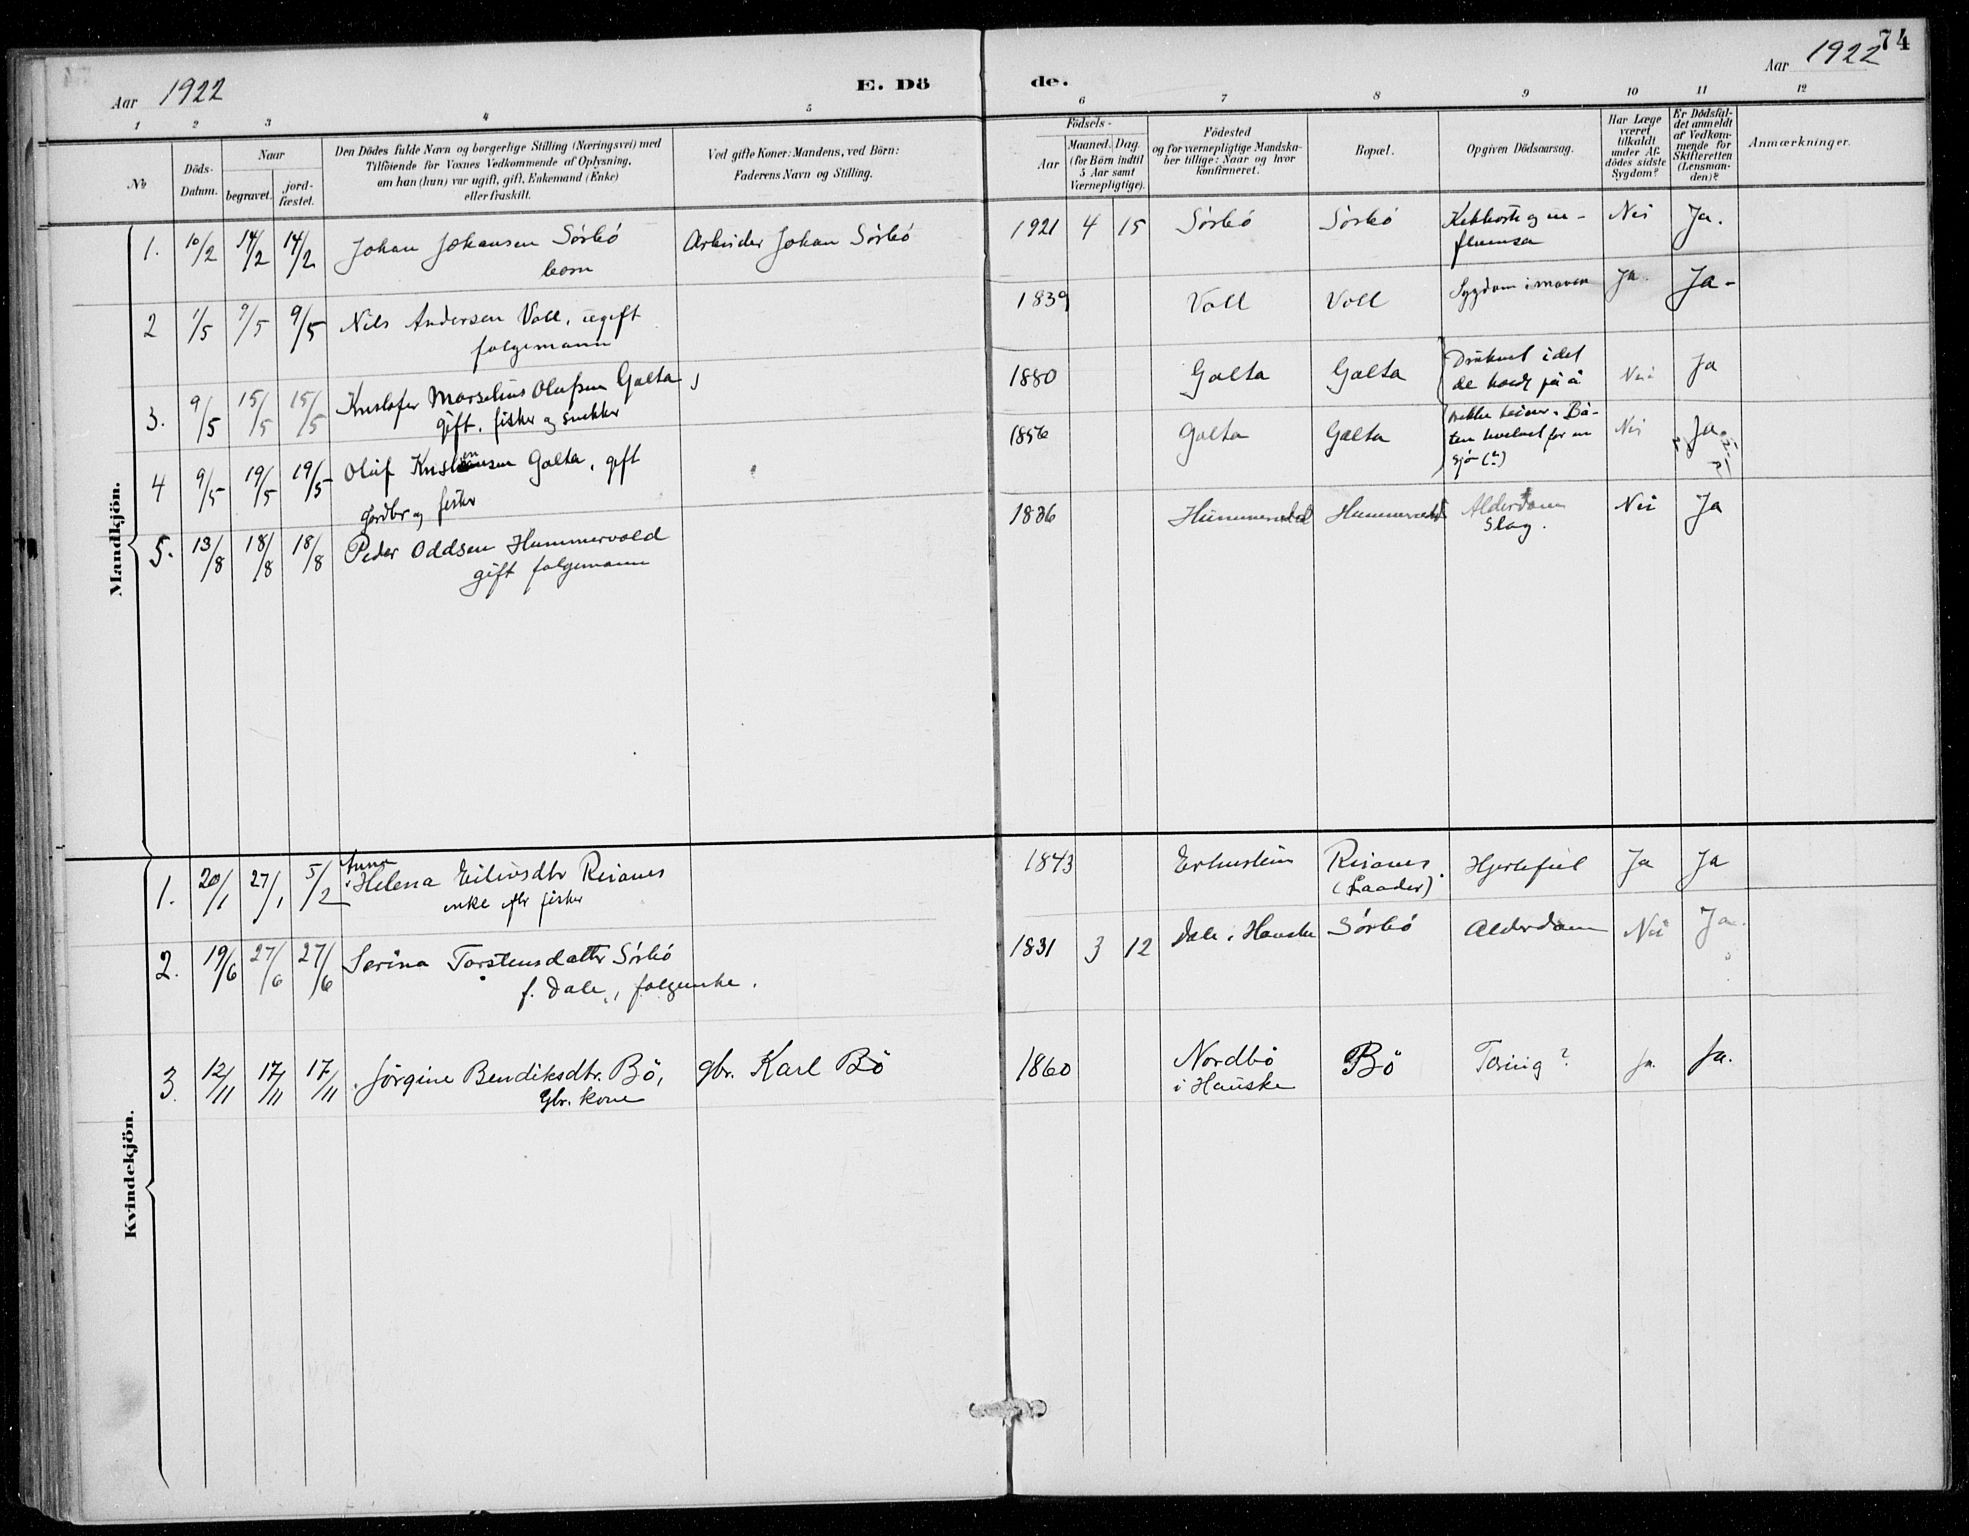 74
Aar 1922
E. Dö
de.
Aar 1922
1 2 3 4 5
6 7 8 9 10 11 12
No
Döds-
Datum.
Naar
begravet.
jord-
fæstet.
Den Dödes fulde Navn og borgerlige Stilling (Næringsvei) med
Tilföiende for Voxnes Vedkommende af Oplysning,
om han (hun) var ugift, gift, Enkemand (Enke)
eller fraskilt.
Ved gifte Koner: Mandens, ved Börn:
Faderens Navn og Stilling.
Födsels-
Aar
Maaned. Dag.
(for Börn indtil
5 Aar samt
Værnepligtige).
Födested
og for værnepligtige Mandska-
ber tillige: Naar og hvor
konfirmeret.
Bopæl.
Opgiven Dödsaarsag.
Har Læge
været
tilkaldt
under Af-
dödes sidste
Sygdom?
Er Dödsfal-
det anmeldt
af Vedkom-
mende for
Skifteretten
(Lensman-
den)?
Anmærkninger.
Mandkjön.
1. 10/2 14/2 14/2 Johan Johansen Sörbö Arbeider Johan Sörbö 1921 4 15 Sörbö Sörbö Kikhoste og in- Nei Ja.
barn fluensa
2 1/5 9/5 9/5 Nils Andersen Voll, ugift 1839 Voll Voll Sygdom i maven Ja. Ja-
folgemann
3. 9/5 15/5 15/5 Kristofer Marselius Olufsen Galta, 1880 Galta Galta Druknet idet Nei Ja
gift. fisker og snekker de holdt på å
4 9/5 19/5 19/5 Oluf Kristiansen Galta, gift 1856 Galta Galta trekke Bå- Nei Ja
gardbr og fisker ten hvelvet for en
sjø (?)
5. 13/8 18/8 18/8 Peder Oddsen Hummervold 1836 Hummervold Hummervold Alderdom Nei Ja
gift folgemann Slag.
Kvindekjön.
1. 20/1 27/1 5/2 Anna
Helena Eilivsdtr Reianes 1843 Erhustein Reianes Hjertefeil Ja Ja
enke eftr fisker (Laader)
2. 19/6 27/6 27/6 Serina Torstensdatter Sörbö 1831 3 12 Dale i Hauske Sörbö Alderdom Nei Ja.
f. Dale, folgeenke.
3. 12/11 17/11 17/11 Jörgine Bendiksdtr. Bö, gbr. Karl Bö 1860 Nordbö Bö Tæring? Ja. Ja.
Gbr. kone i Hauske